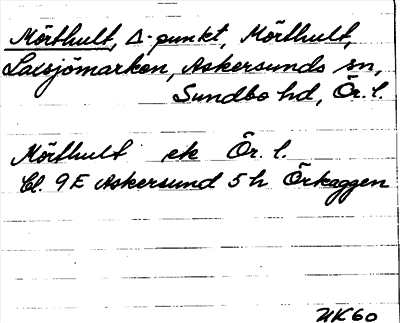 Mörthult, Δ-punkt, Mörthult,
Laxsjömarken, Askersunds sn,
Sundbo hd, Ör. l.
Mörthult ek Ör. l.
Bl. 9E Askersund 5h Örkaggen
UK60